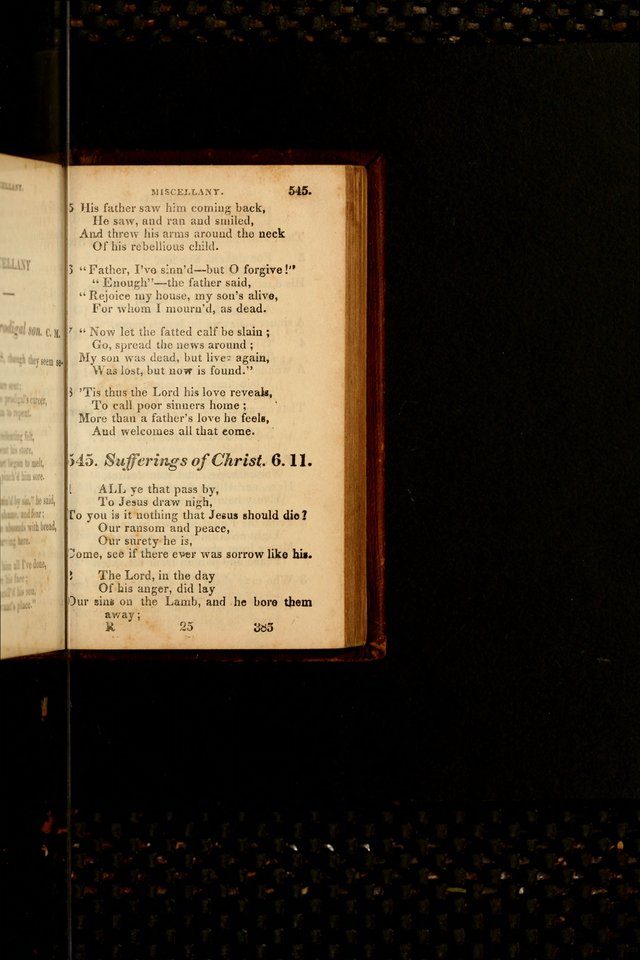 ELLANY.
ELLANY
rodigal son. C. M.
though they seem se-
are sent:
prodigal's career,
to repent.
felt,
his store,
began to melt,
pinch'd him sore.
he said,
and fear:
abounds with bread,
here.
him all I've done,
his face;
MISCELLANY. 545.
5 His father saw him coming back,
He saw, and ran and smiled,
And threw his arms around the neck
Of his rebellious child.
6 "Father, I've sinn'd—but O forgive!"
"Enough"—the father said,
"Rejoice my house, my son's alive,
For whom I mourn'd, as dead.
7 "Now let the fatted calf be slain;
Go, spread the news around;
My son was dead, but lives again,
Was lost, but now is found."
8 'Tis thus the Lord his love reveals,
To call poor sinners home;
More than a father's love he feels,
And welcomes all that come.
545. Sufferings of Christ. 6. 11.
1 ALL ye that pass by,
To Jesus draw nigh,
To you is it nothing that Jesus should die?
Our ransom and peace,
Our surety he is,
Come, see if there ever was sorrow like his.
2 The Lord, in the day
Of his anger, did lay
Our sins on the Lamb, and he bore them
away;
R 25 385